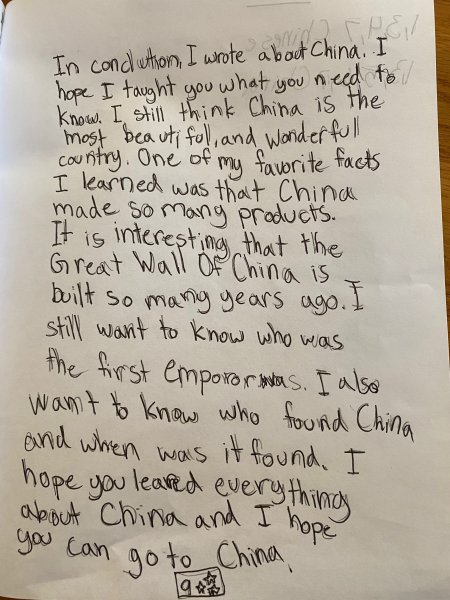 In concluthion, I wrote about China. I
hope I taught you what you need to
know. I still think China is the
most beautifull, and wonderfull
country. One of my favorite facts
I learned was that China
made so many products.
It is interesting that the
Great Wall Of China is
built so many years ago. I
still want to know who was
the first emporor was. I also
want to know who found China
and when was it found. I
hope you leared everything
about China and I hope
you can go to China.
9